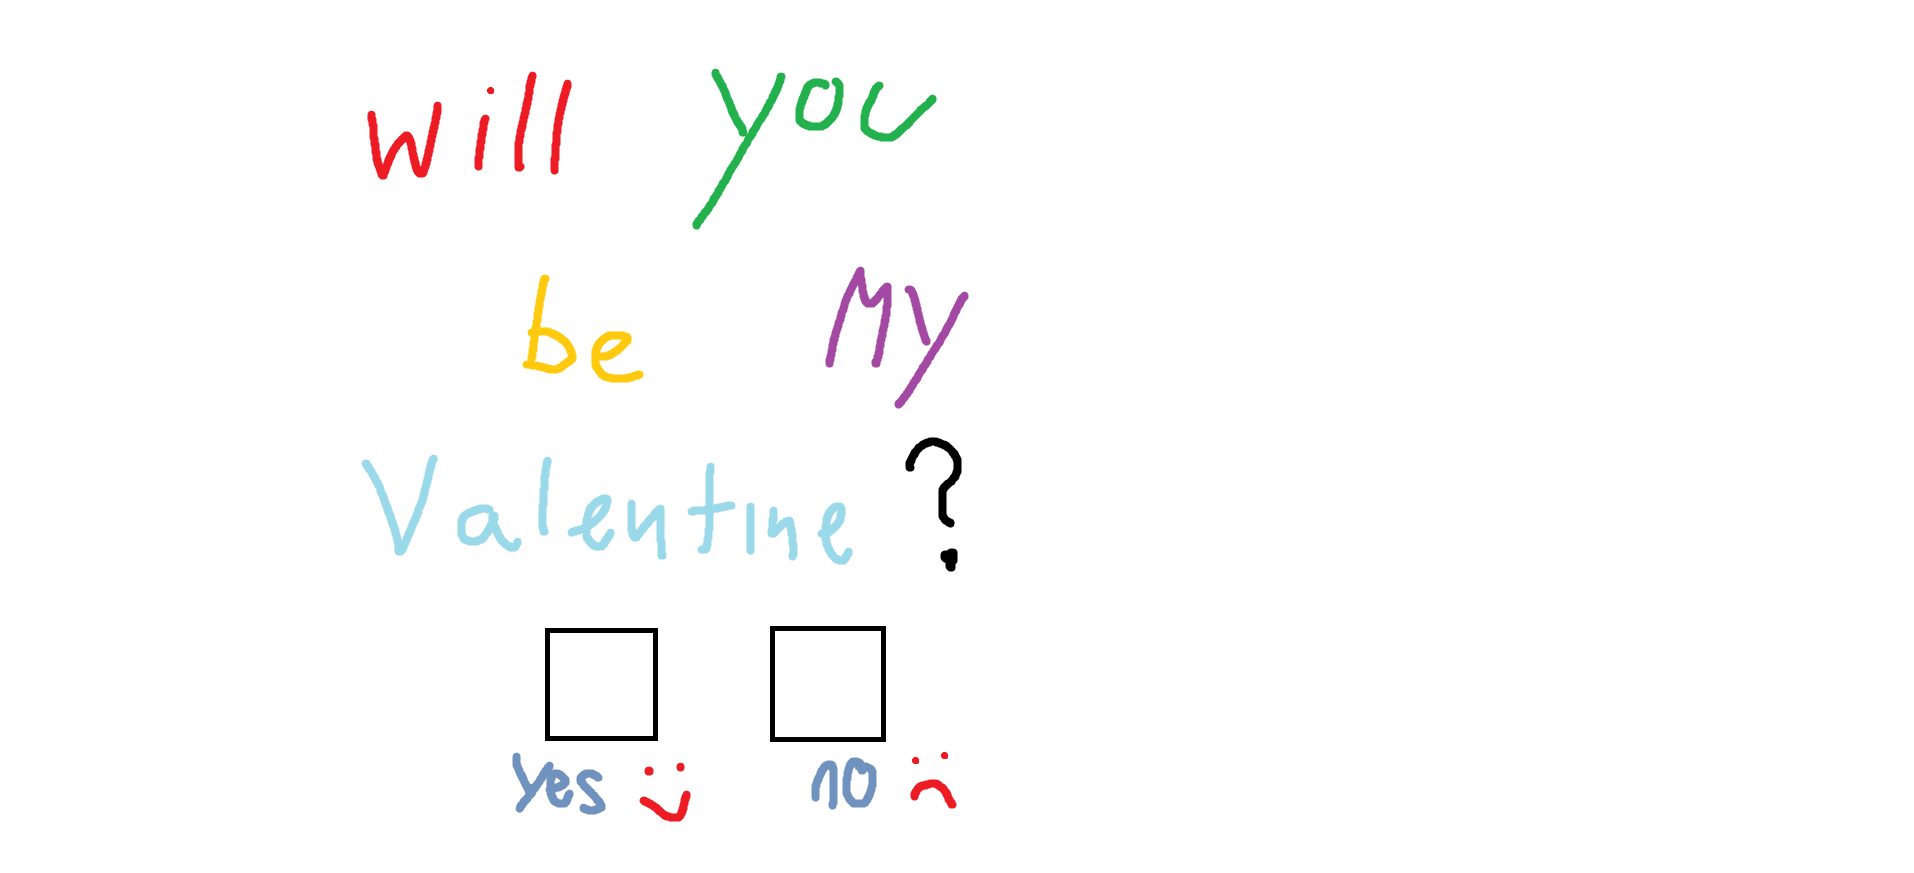 will you
be My
Valentine ?
yes no